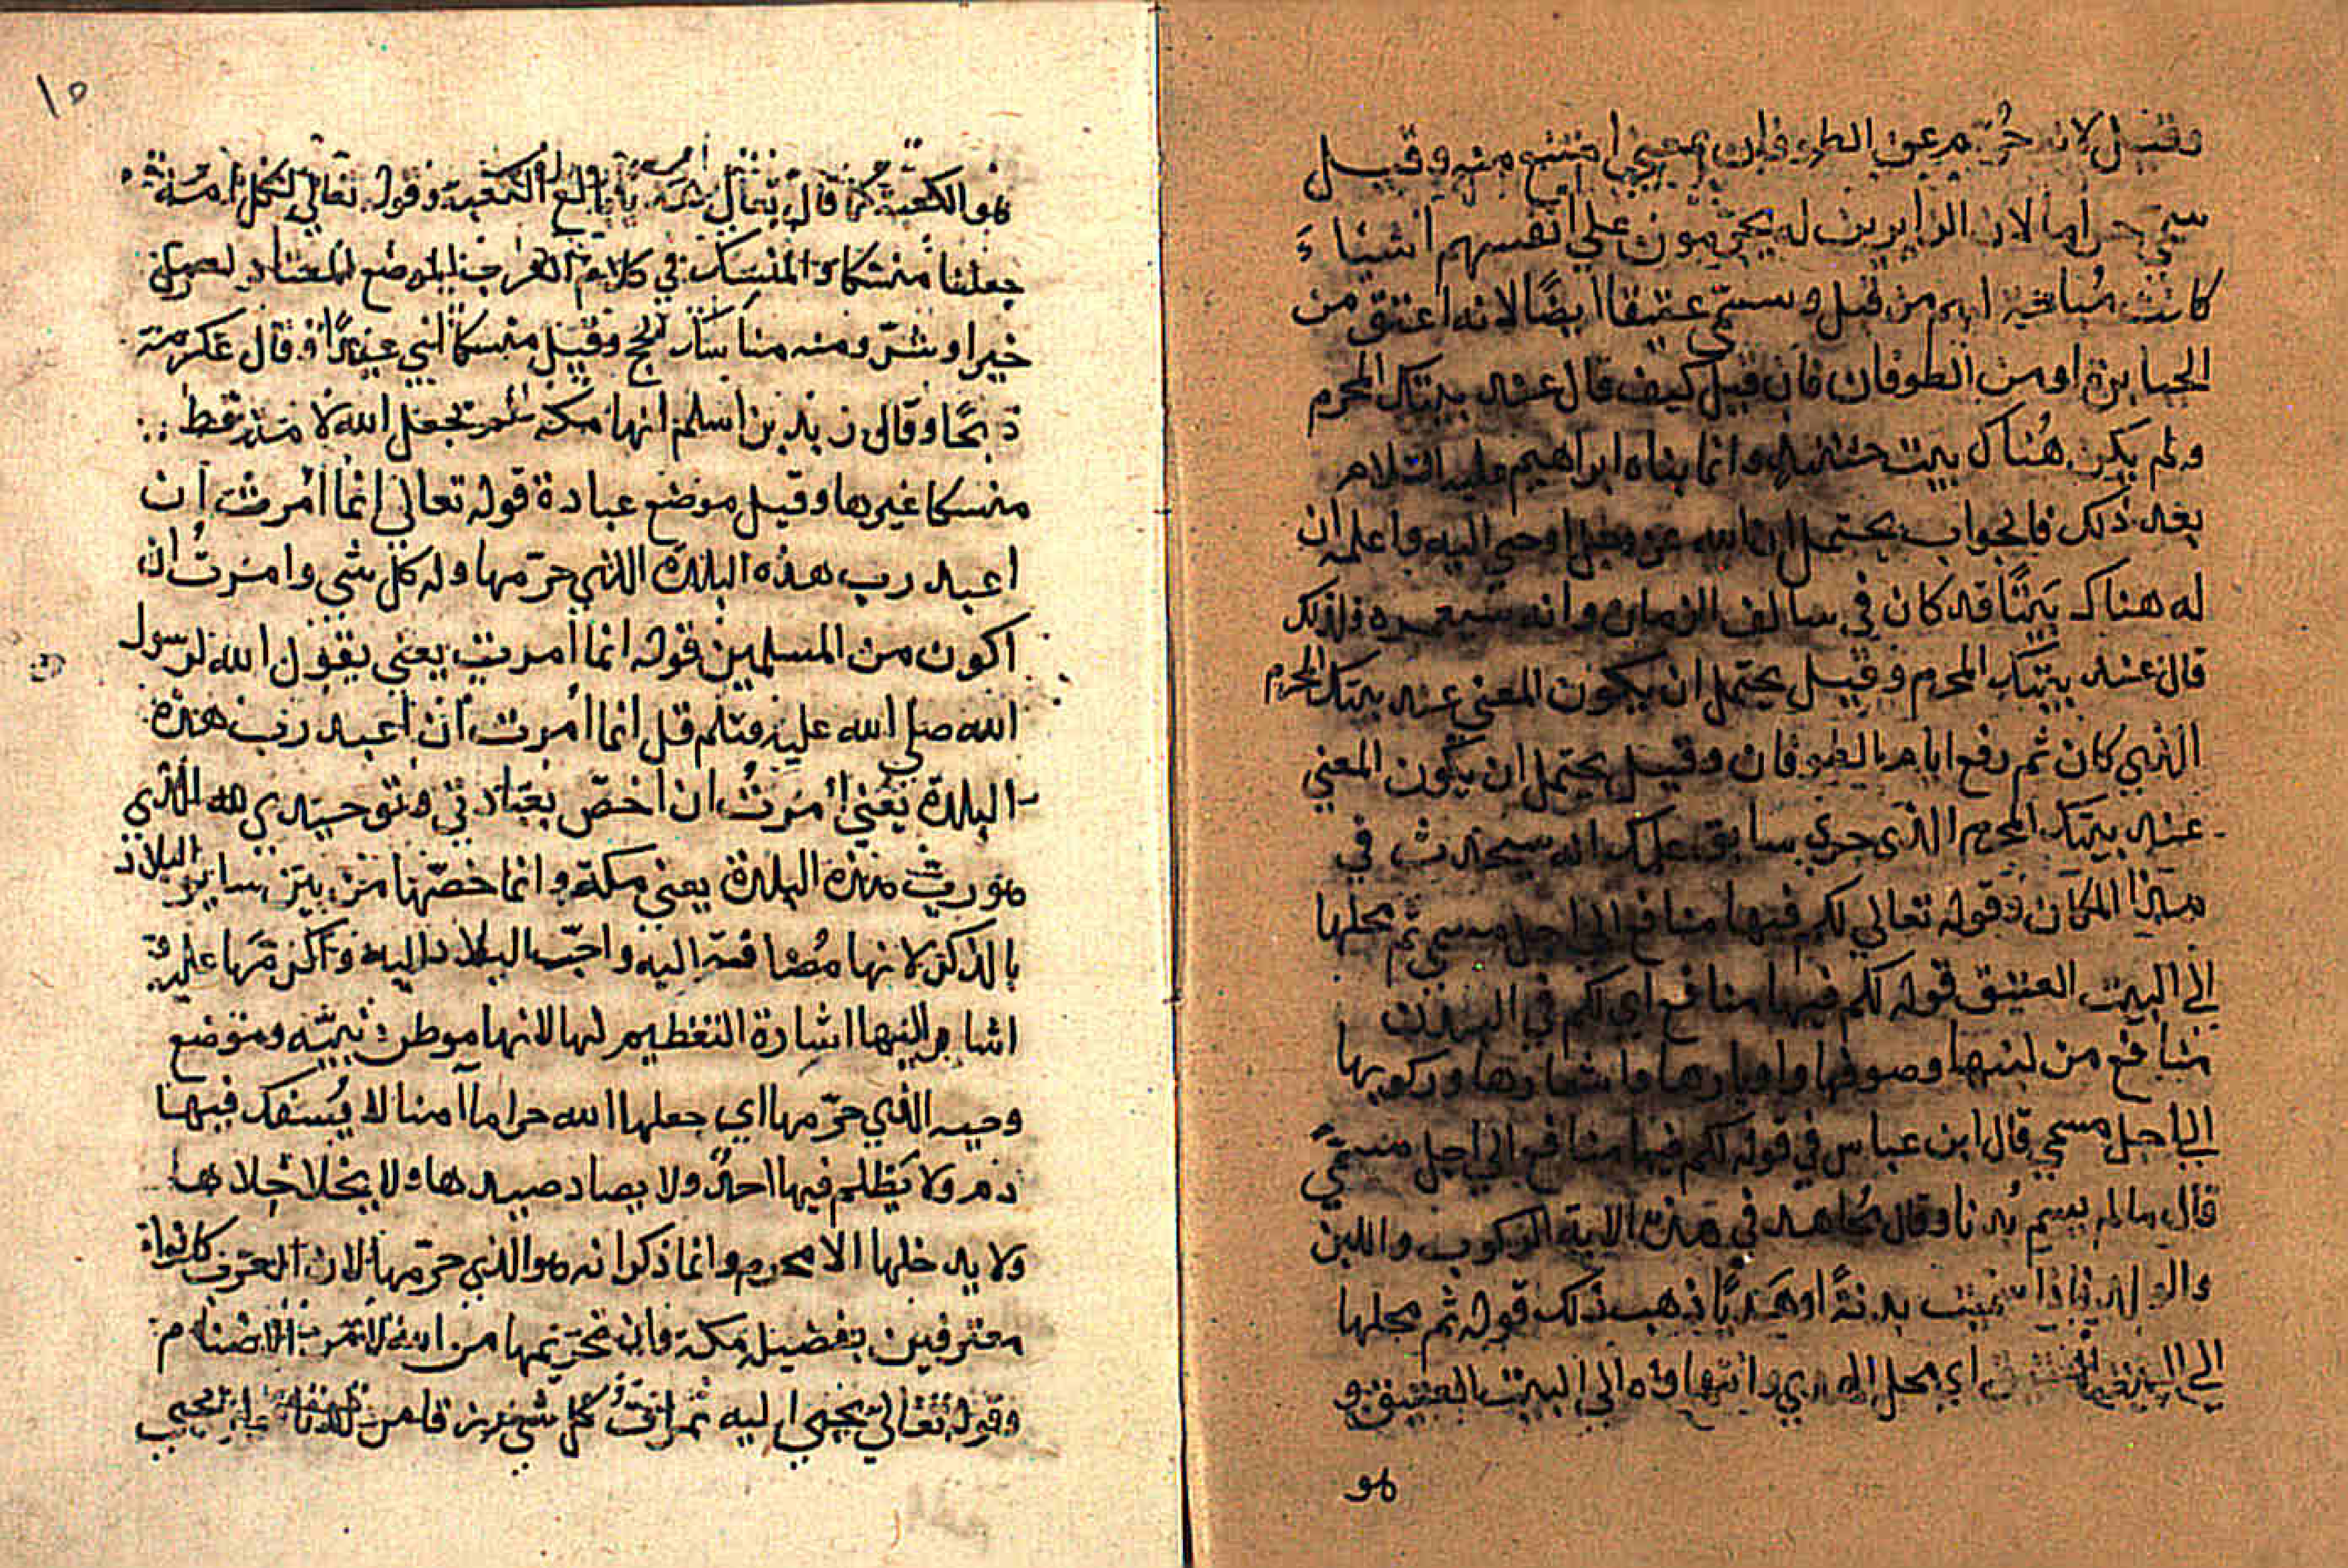 وقيل لانه حُرّم عن الطوفان بمعني امتنع منه وقيل
سمي حراما لان الزايرين له يحرّمون علي انفسهم اشياءَ
كانت مُباحة لهم من قبل وسمّي عتيقا ايضًا لانه اعتق من
الجبابرة او من الطوفان فان قيل كيف قال عند بيتك المحرم
ولم يكن هُناك بيت حينئذ وانما بناه ابراهيم عليه السلام
بعد ذلك فالجواب يحتمل ان الله عز وجل اوحي اليه واعلمه ان
له هناك بيتًا قد كان في سالف الزمان وانه سيعمره فلذلك
قال عند بيتك المحرم وقيل يحتمل ان يكون المعني عند بيتك المحرم
الذي كان ثم رفع ايام الطوفان وقيل يحتمل ان يكون المعني
عند بيتك المحرم الذي جري سابق علمك انه سيحدث في
هذا المكان وقوله تعالي لكم فيها منافع الي اجل مسمي ثم محلها
الي البيت العتيق قوله لكم فيها منافع اي لكم في البدن
منافع من لبنها وصوفها واوبارها واشعارها وركوبها
الي اجل مسمي قال ابن عباس في قوله لكم فيها منافع الي اجل مسميً
قال ما لم يسم بُدنا وقال مُجاهد في هذه الاية الركوب واللبن
والولد فاذا سميت بدنةً او هَديًا ذهب ذلك قوله ثم محلها
الي البيت العتيق اي محل الهدي وانتهاوه الي البيت العتيق و
هو
١٥
هو الكعبة كما قال تعالي هديًا بالغ الكعبة وقوله تعالي لكل امة
جعلنا منسكا والمنسك في كلام العرب الموضع المعتاد لعمل
خير او شرّ ومنه مناسك الحج وقيل منسكا اي عيدًا وقال عكرمة
ذبحًا وقال زيد بن اسلم انها مكة لم يجعل الله لامة قط
منسكا غيرها وقيل موضع عبادة قوله تعالي انما أمرت ان
اعبد رب هذه البلدة الذي حرّمها وله كل شي وامرتُ ان
اكون من المسلمين قوله انما أمرت يعني يقول الله لرسول
الله صلي الله عليه وسلم قل انما أمرت ان اعبد رب هذه
البلدة يعني أمرتُ ان اخصّ بعبادتي وتوحيدي لله الذي
هو رب هذه البلدة يعني مكة وانما خصّها من بين ساير البلاد
بالذكر لانها مُضافة اليه واحبّ البلاد اليه واكرمها عليه و
اشار اليها اشارة التعظيم لها لانها موطن نبيّه وموضع
وحيه الذي حرّمها اي جعلها الله حراما آمنا لا يُسفك فيها
دم ولا يَظلم فيها احدٌ ولا يصاد صيدها ولا يختلا خلاها
ولا يدخلها الا محرم وانما ذكر انه هو الذي حرّمها لان العرب كانوا
معترفين بفضيلة مكة فان تحريمها من الله لا من الاصنام
وقوله تعالي يجبي اليه ثمراتُ كل شي رزقا من لدنا يجبي